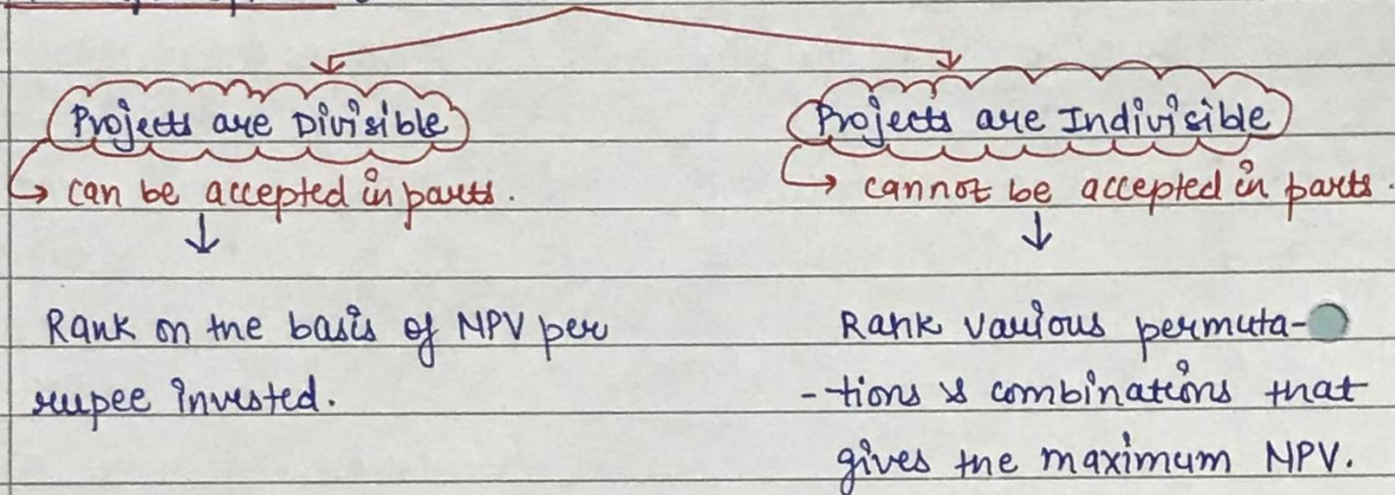 Projects are Divisible
can be accepted in parts.
Rank on the basis of NPV per
rupee invested.
Projects are Indivisible
cannot be accepted in parts.
Rank various permuta-
-tions & combinations that
gives the maximum NPV.